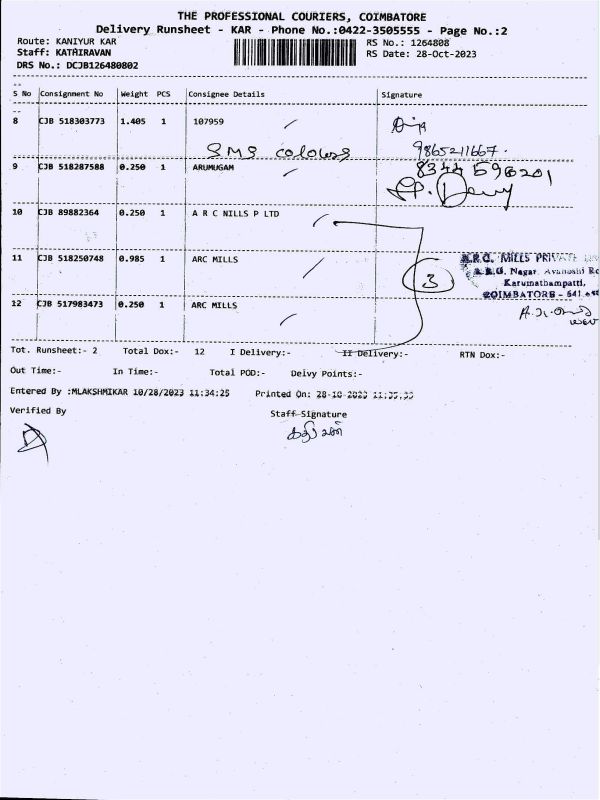 THE PROFESSIONAL COURIERS, COIMBATORE
Delivery Runsheet - KAR - Phone No.:0422-3505555 - Page No.:2
Route: KANIYUR KAR RS No.: 1264808
Staff: KATHIRAVAN RS Date: 28-Oct-2023
DRS No.: DCJB126480802
S No Consignment No Weight PCS Consignee Details Signature
8 CJB 518303773 1.405 1 107959
SMS colours 9865211667.
9 CJB 518287588 0.250 1 ARUMUGAM 8344598201
10 CJB 89882364 0.250 1 A R C NILLS P LTD
11 CJB 518250748 0.985 1 ARC MILLS
3
A.R.C. MILLS PRIVATE
A.R.G. Nagar, Avanashi Ro
Karumathampatti,
COIMBATORE - 641
12 CJB 517983473 0.250 1 ARC MILLS
Tot. Runsheet:- 2 Total Dox:- 12 I Delivery:- II Delivery:- RTN Dox:-
Out Time:- In Time:- Total POD:- Delvy Points:-
Entered By :MLAKSHMIKAR 10/28/2023 11:34:25 Printed On: 28-10-2023
Verified By Staff Signature
கதிரவன்